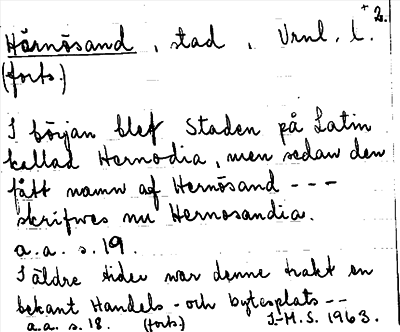 2.
Härnösand, stad, Vrnl. l.+
(forts.)
I början blef Staden på Latin
kallad Hernodia, men sedan den
fått namn af Hernösand ---
skrifwes nu Hernosandia.
a.a. s. 19.
I äldre tider war denne trakt en
bekant Handels- och bytesplats --
a.a. s. 18. (forts.) J.-M.S. 1963.